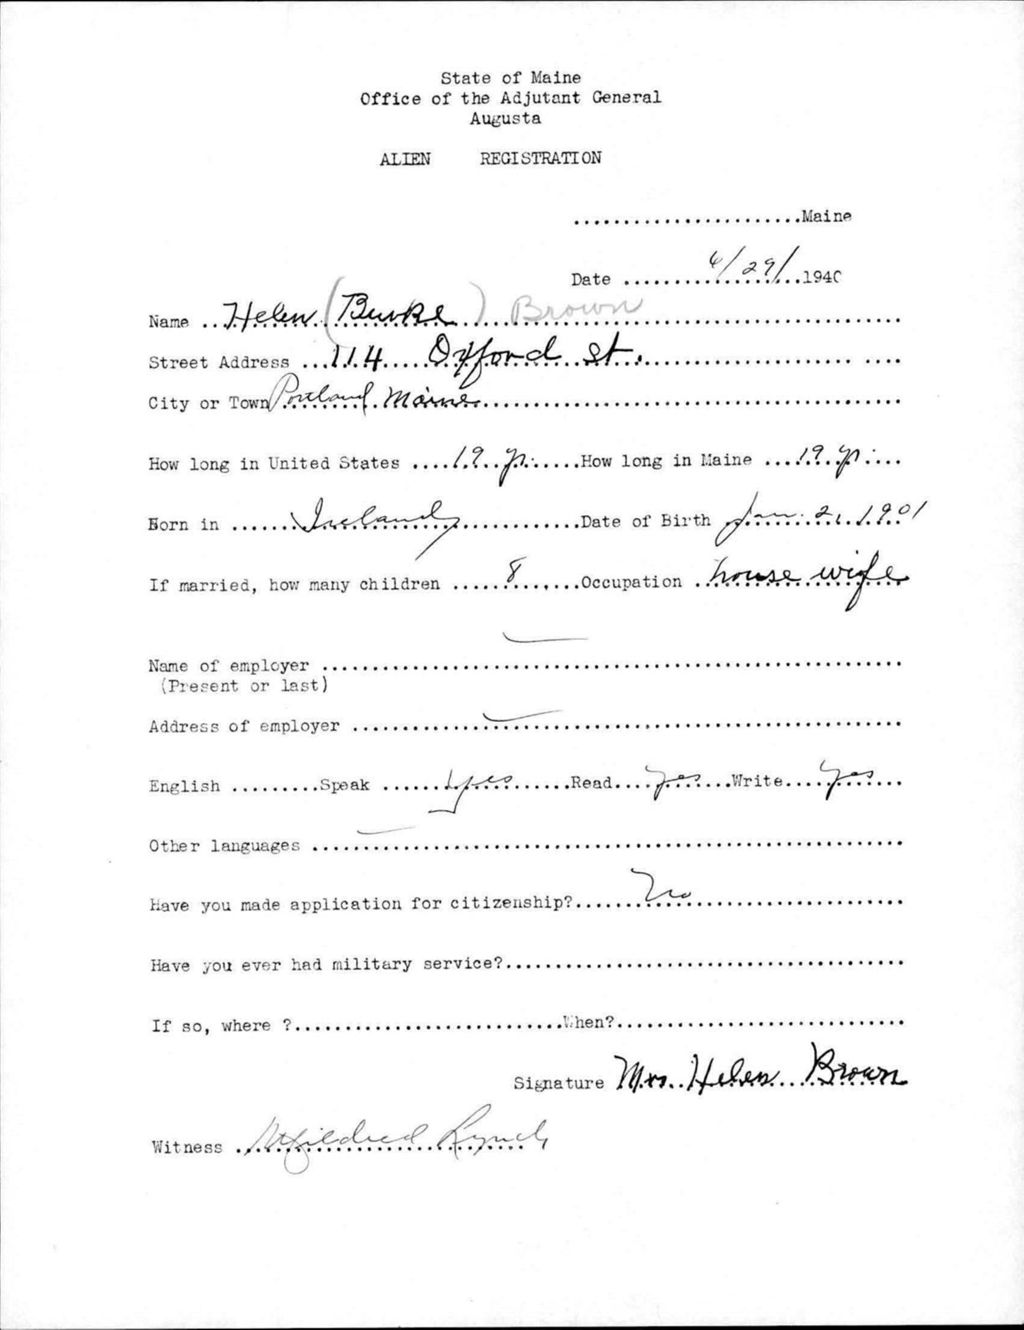 State of Maine
Office of the Adjutant General
Augusta
ALIEN REGISTRATION
.......................Maine
Date .........6/29/..1940
Name ..Helen (Burke) Brown
Street Address ...114 Oxford St.
City or Town Portland, Maine
How long in United States ....19 yr......How long in Maine ...19 yr....
Born in ......Ireland............Date of Birth Jan. 2, 1901
If married, how many children .....8......Occupation ..house wife
Name of employer ..........................................................
(Present or last)
Address of employer .......................................................
English .........Speak ......yes......Read....yes...Write....yes...
Other languages ...........................................................
Have you made application for citizenship?.......No.....................
Have you ever had military service?........................................
If so, where ?...........................When?.............................
Signature Mrs. Helen Brown
Witness .Mildred Lynch